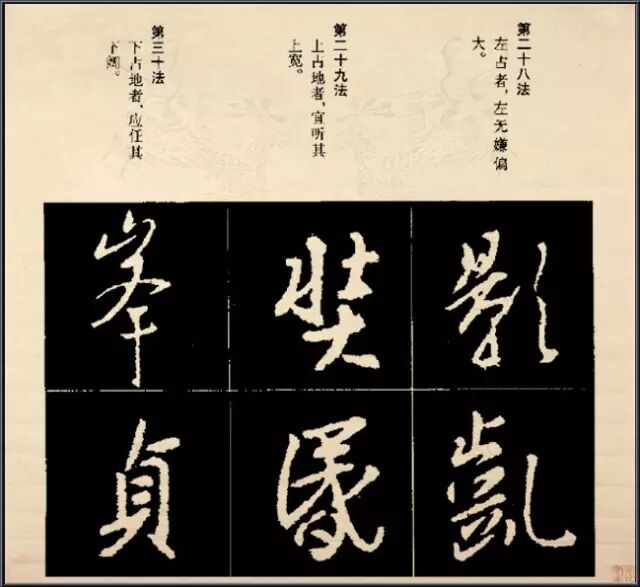 第二十八法
左占者，左无嫌偏
大。
第二十九法
上占地者，宜听其
上宽。
第三十法
下占地者，应任其
下阔。
影
凱
奘
峯
貞